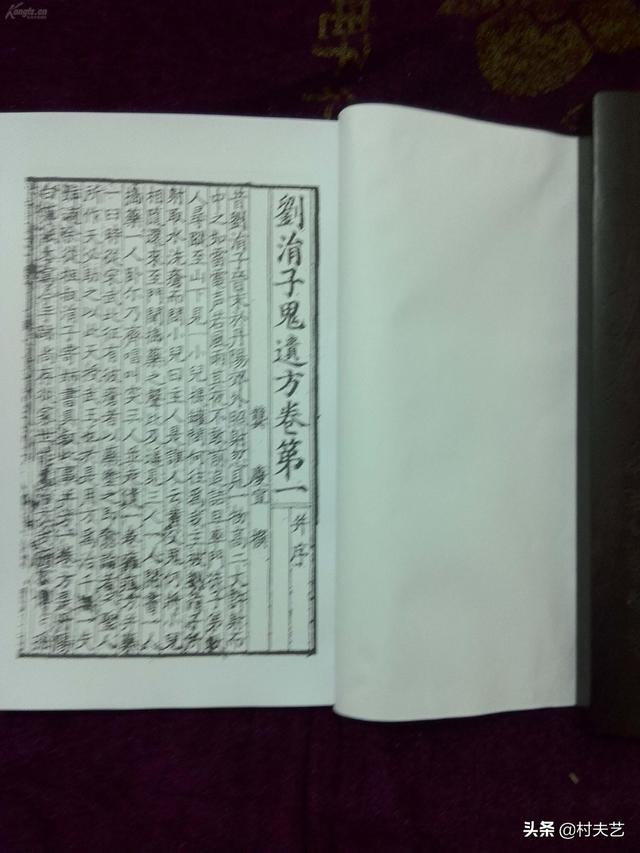 劉涓子鬼遺方卷第一 并序
龔慶宣 撰
昔劉涓子晉末於丹陽郊外照射忽見一物高二丈許射而
中之如雷電声若風雨其夜不敢前追詰旦率門徒子弟數
人尋蹤至山下見一小兒提罐問何往為我主被劉涓子所
射取水洗瘡而問小兒曰主人是誰人云黃父鬼仍將小兒
相隨還來至門聞搗藥之聲比及遙見三人一人開書一人
搗藥一人卧尔乃齊唱叫突三人並走遺一卷癰疽方并藥
一臼時從宋武北征有被瘡者以藥塗之即愈論者云聖人
所作天必助之以此天授武王也於是用方為治千無一失
姊適余從祖叔涓子寄姊書具叙此事并方一卷方是丹陽
白薄紙本寫今手跡尚存從家世
头条 @村夫艺
Kongfz.cn